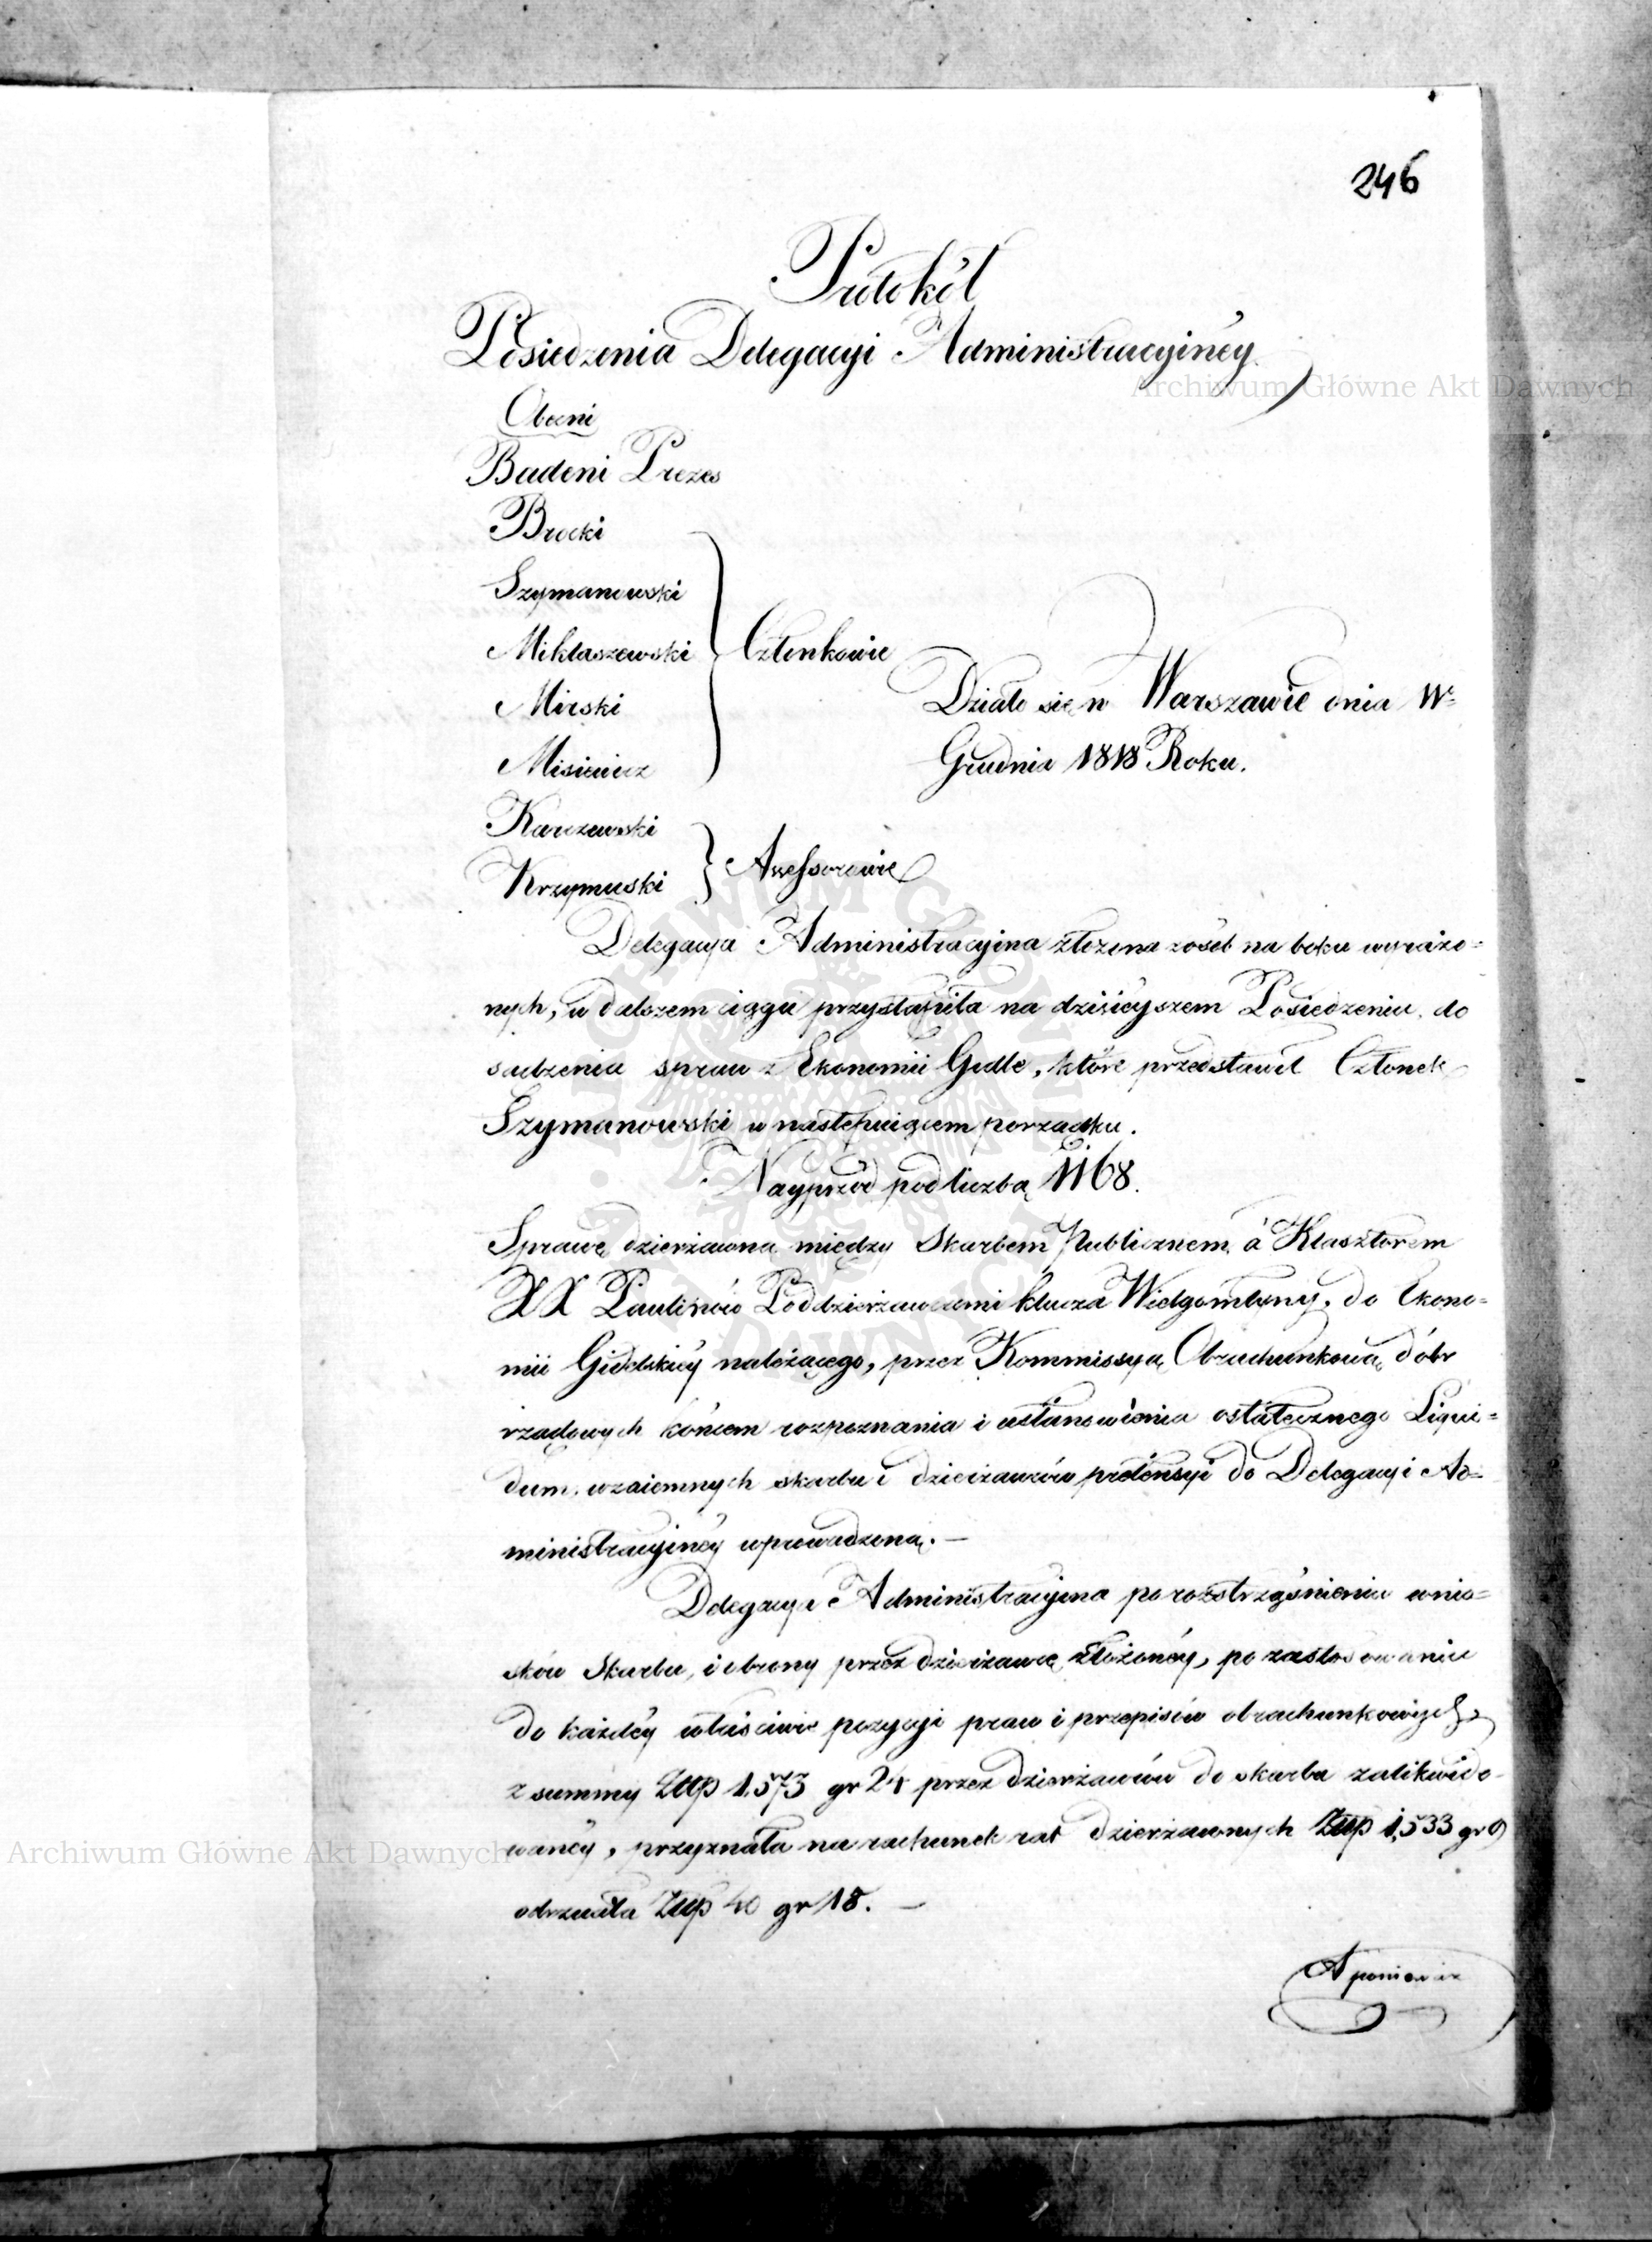 246
Protokół
Posiedzenia Delegacyi Administracyinéy
Obecni
Badeni Prezes
Brocki
Szymanowski
Miklaszewski
Członkowie
Mirski
Misiewicz
Działo się w Warszawie dnia 11º
Grudnia 1818 Roku.
Karczewski
Krzymuski
Assessorowie
Delegacya Administracyina złożona z osób na boku wyrażo=
nych, w dalszem ciągu przystąpiła na dzisieyszem Posiedzeniu, do
sądzenia spraw z Ekonomii Gidle, które przedstawił Członek
Szymanowski w następuiącem porządku.
Nayprzód pod liczbą 1168.
Sprawę dzierżawną między Skarbem Publicznem, a Klasztorem
XX Paulinów Poddzierżawcami klucza Wielgomłyny, do Ekono=
mii Gidelskiéy należącego, przez Kommissyą Obrachunkową dóbr
rządowych końcem rozpoznania i ustanowienia ostatecznego Liqui=
dum, wzaiemnych skarbu i dzierżawców pretensyi do Delegacyi Ad=
ministracyinéy wprowadzoną. —
Delegacya Administracyina po rozstrząśnieniu wnio=
sków Skarbu, i obrony przez dzierżawcę złożonéy, po zastosowaniu
do każdéy właściwie pozycyi praw i przepisów obrachunkowych,
z summy Złp 1,573 gr 24 przez dzierżawców do skarbu zalikwido-
wanéy, przyznała na rachunek rat dzierżawnych Złp 1,533 gr 9
odrzuciła Złp 40 gr 18. —
Archiwum Główne Akt Dawnych
Archiwum Główne Akt Dawnych